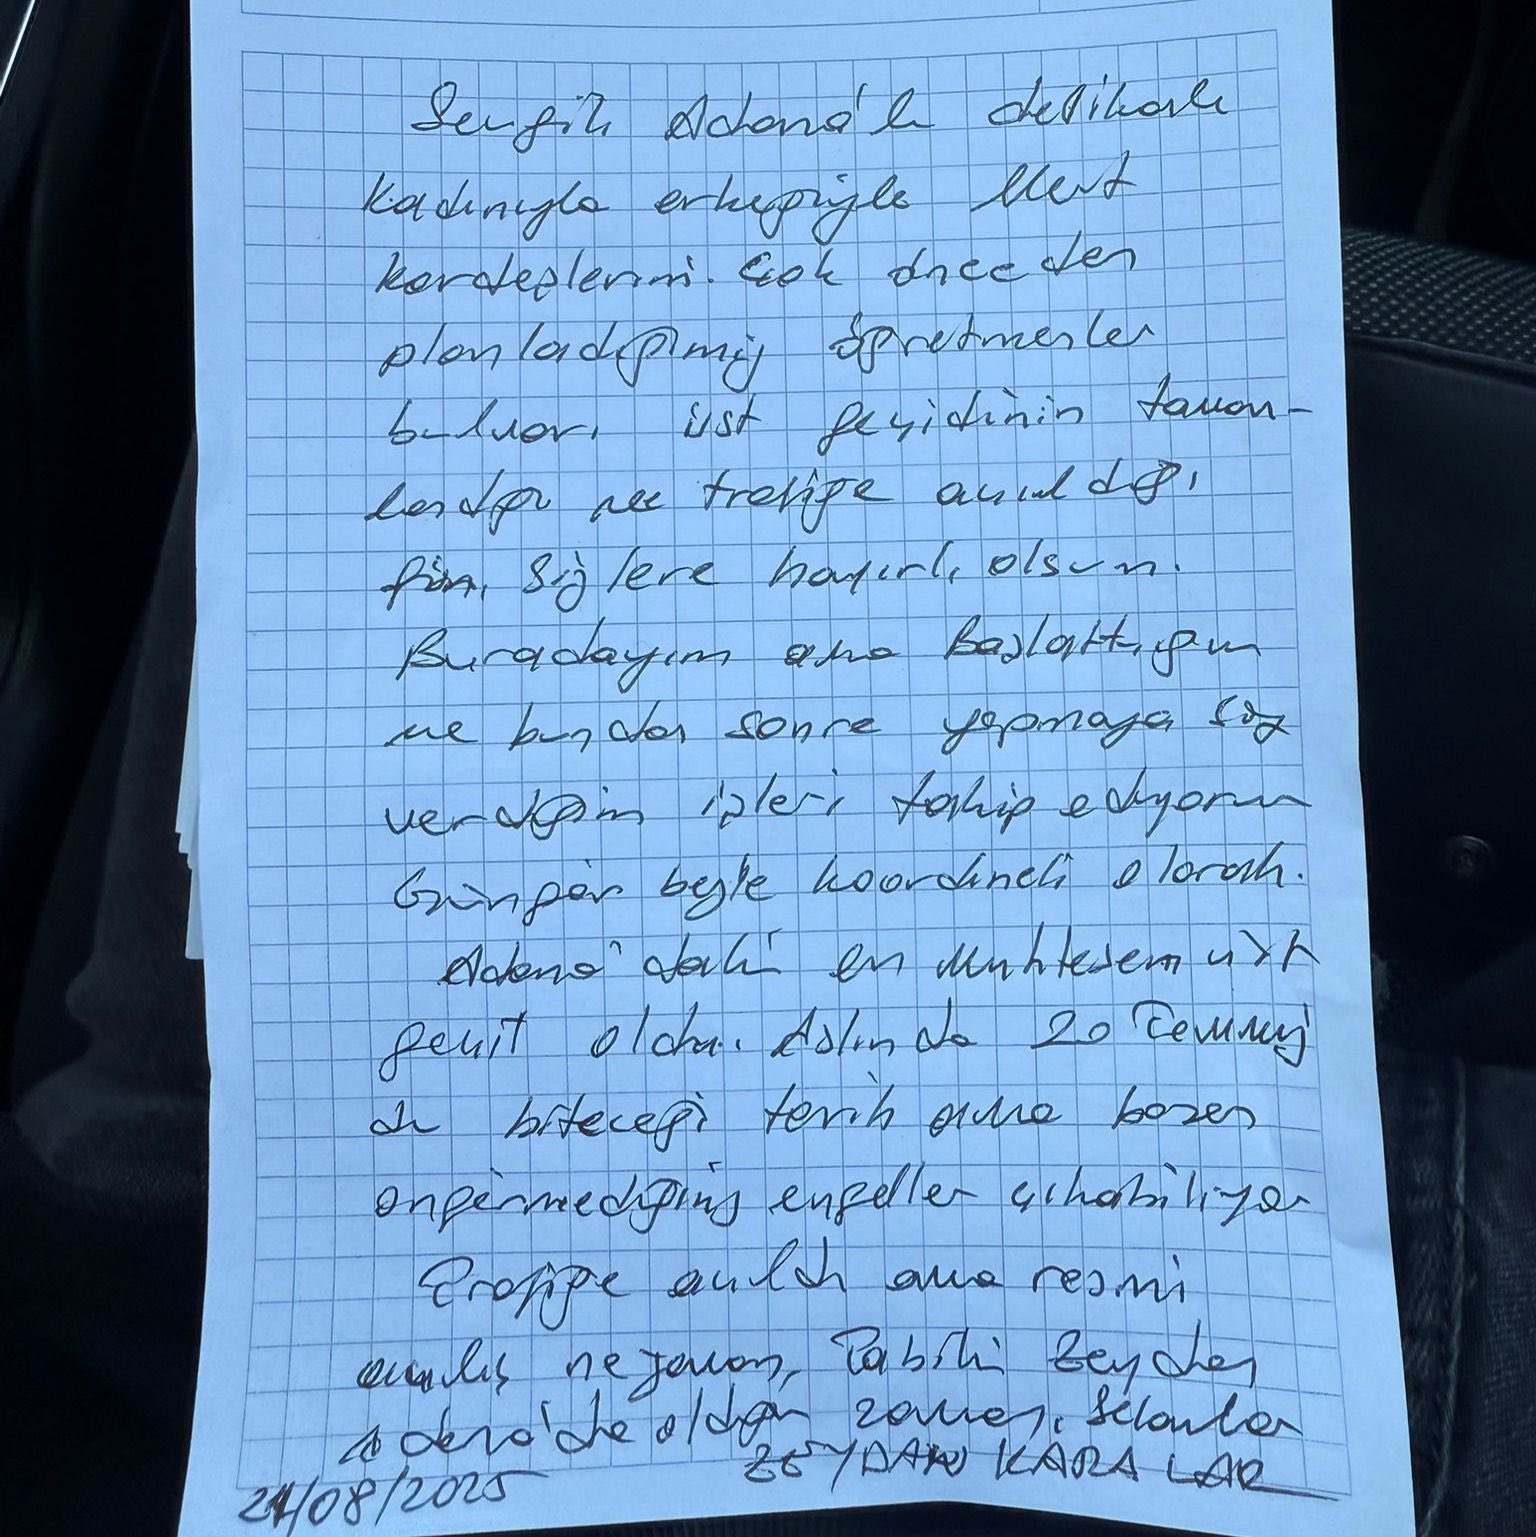 Sevgili Adana'lı delikanlı
Kadınıyla erkeğiyle Mert
kardeşlerim. Çok önceden
planladığımız öğretmenler
bulvarı üst geçidinin tamam-
landığı ve trafiğe açıldığı
gün. Sizlere hayırlı olsun.
Buradayım ama Başlattığım
ve bundan sonra yapmaya söz
verdiğim işleri takip ediyorum
Güngör beyle koordineli olarak.
Adana'daki en Muhteşem üst
geçit oldu. Aslında 20 Temmuz
du biteceği tarih ama bazen
öngörmediğiniz engeller çıkabiliyor
Trafiğe açıldı ama resmi
açılış ne zaman, Tabiki Zeydan
Adana'da olduğu zaman. Selamlar
ZEYDAN KARALAR
21/08/2025